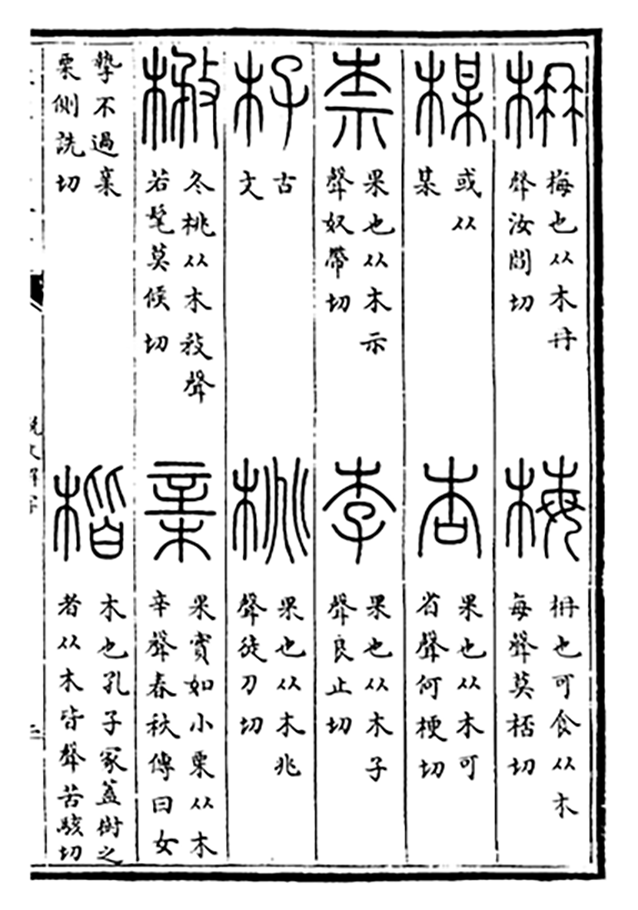 枏
梅也从木冄
聲汝閻切
梅
枏也可食从木
每聲莫桮切
楳
或从
某
杏
果也从木可
省聲何梗切
柰
果也从木示
聲奴帶切
李
果也从木子
聲良止切
杍
古
文
桃
果也从木兆
聲徒刀切
㮊
冬桃从木敄聲
若髦莫候切
亲
果實如小栗从木
辛聲春秋傳曰女
摯不過亲
栗側詵切
楷
木也孔子冢蓋樹之
者从木皆聲苦駭切